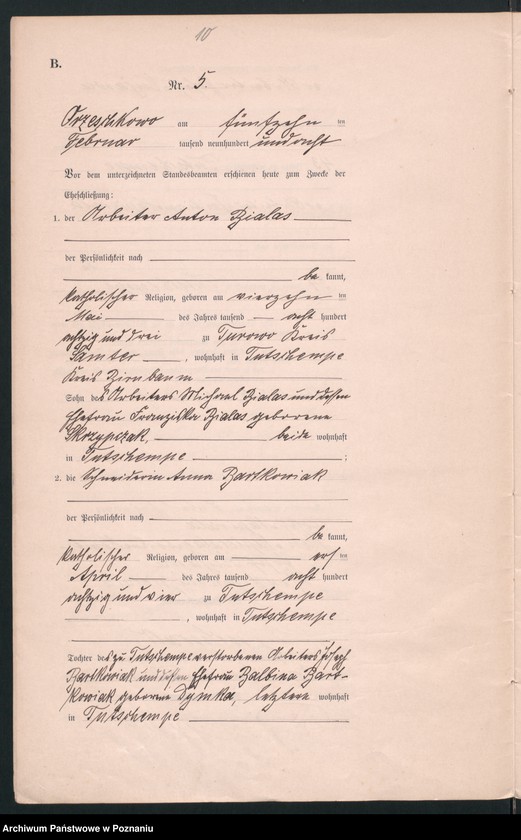 10
B.
Nr. 5.
Orzeschkowo am fünfzehn ten
Februar tausend neunhundert und acht
Vor dem unterzeichneten Standesbeamten erschienen heute zum Zwecke der
Eheschließung:
1. der Arbeiter Anton Bialas
der Persönlichkeit nach
be kannt,
katholischer Religion, geboren am vierzehn ten
Mai des Jahres tausend acht hundert
achtzig und drei zu Turowo Kreis
Samter, wohnhaft in Tutschempe
Kreis Birnbaum
Sohn des Arbeiters Michael Bialas und dessen
Ehefrau Franziska Bialas geborene
Skrzypczak, beide wohnhaft
in Tutschempe ;
2. die Schneiderin Anna Bartkowiak
der Persönlichkeit nach
be kannt,
katholischer Religion, geboren am ersten
April des Jahres tausend acht hundert
achtzig und vier zu Tutschempe
, wohnhaft in Tutschempe
Tochter des zu Tutschempe verstorbenen Arbeiters Joseph
Bartkowiak und dessen Ehefrau Balbina Bart-
kowiak geborene Dymka, letztere wohnhaft
in Tutschempe
Archiwum Państwowe w Poznaniu